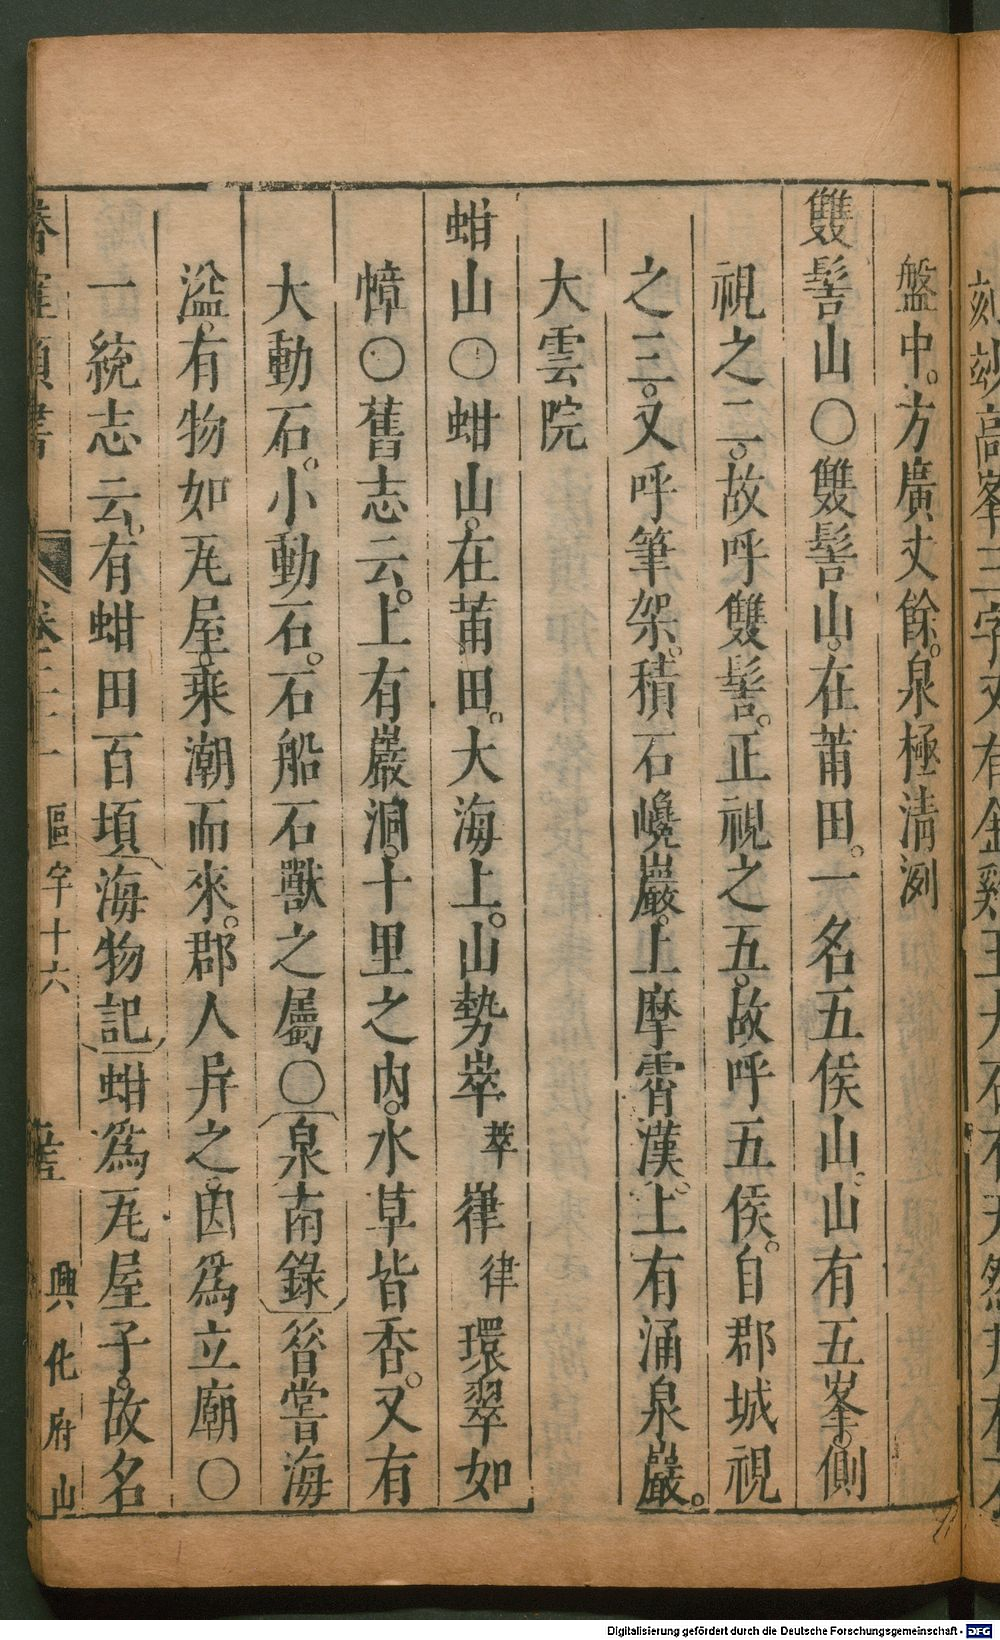 盤中。方廣丈餘。泉極清洌
雙髻山〇雙髻山。在莆田。一名五侯山。山有五峯。側
視之二。故呼雙髻。正視之五。故呼五侯。自郡城視
之三。又呼筆架。積石巉巖。上摩霄漢。上有涌泉巖。
大雲院
蚶山〇蚶山。在莆田。大海上。山勢崒萃嵂律環翠如
幛〇舊志云。上有巖洞。十里之內。水草皆香。又有
大動石。小動石。石船石獸之屬〇泉南錄昝嘗海
溢。有物如瓦屋。乘潮而來。郡人异之。因爲立廟〇
一統志云。有蚶田百頃海物記蚶爲瓦屋子。故名
區宇十六
興化府山
刻
高峯三字又有金雞玉
Digitalisierung gefördert durch die Deutsche Forschungsgemeinschaft - DFG